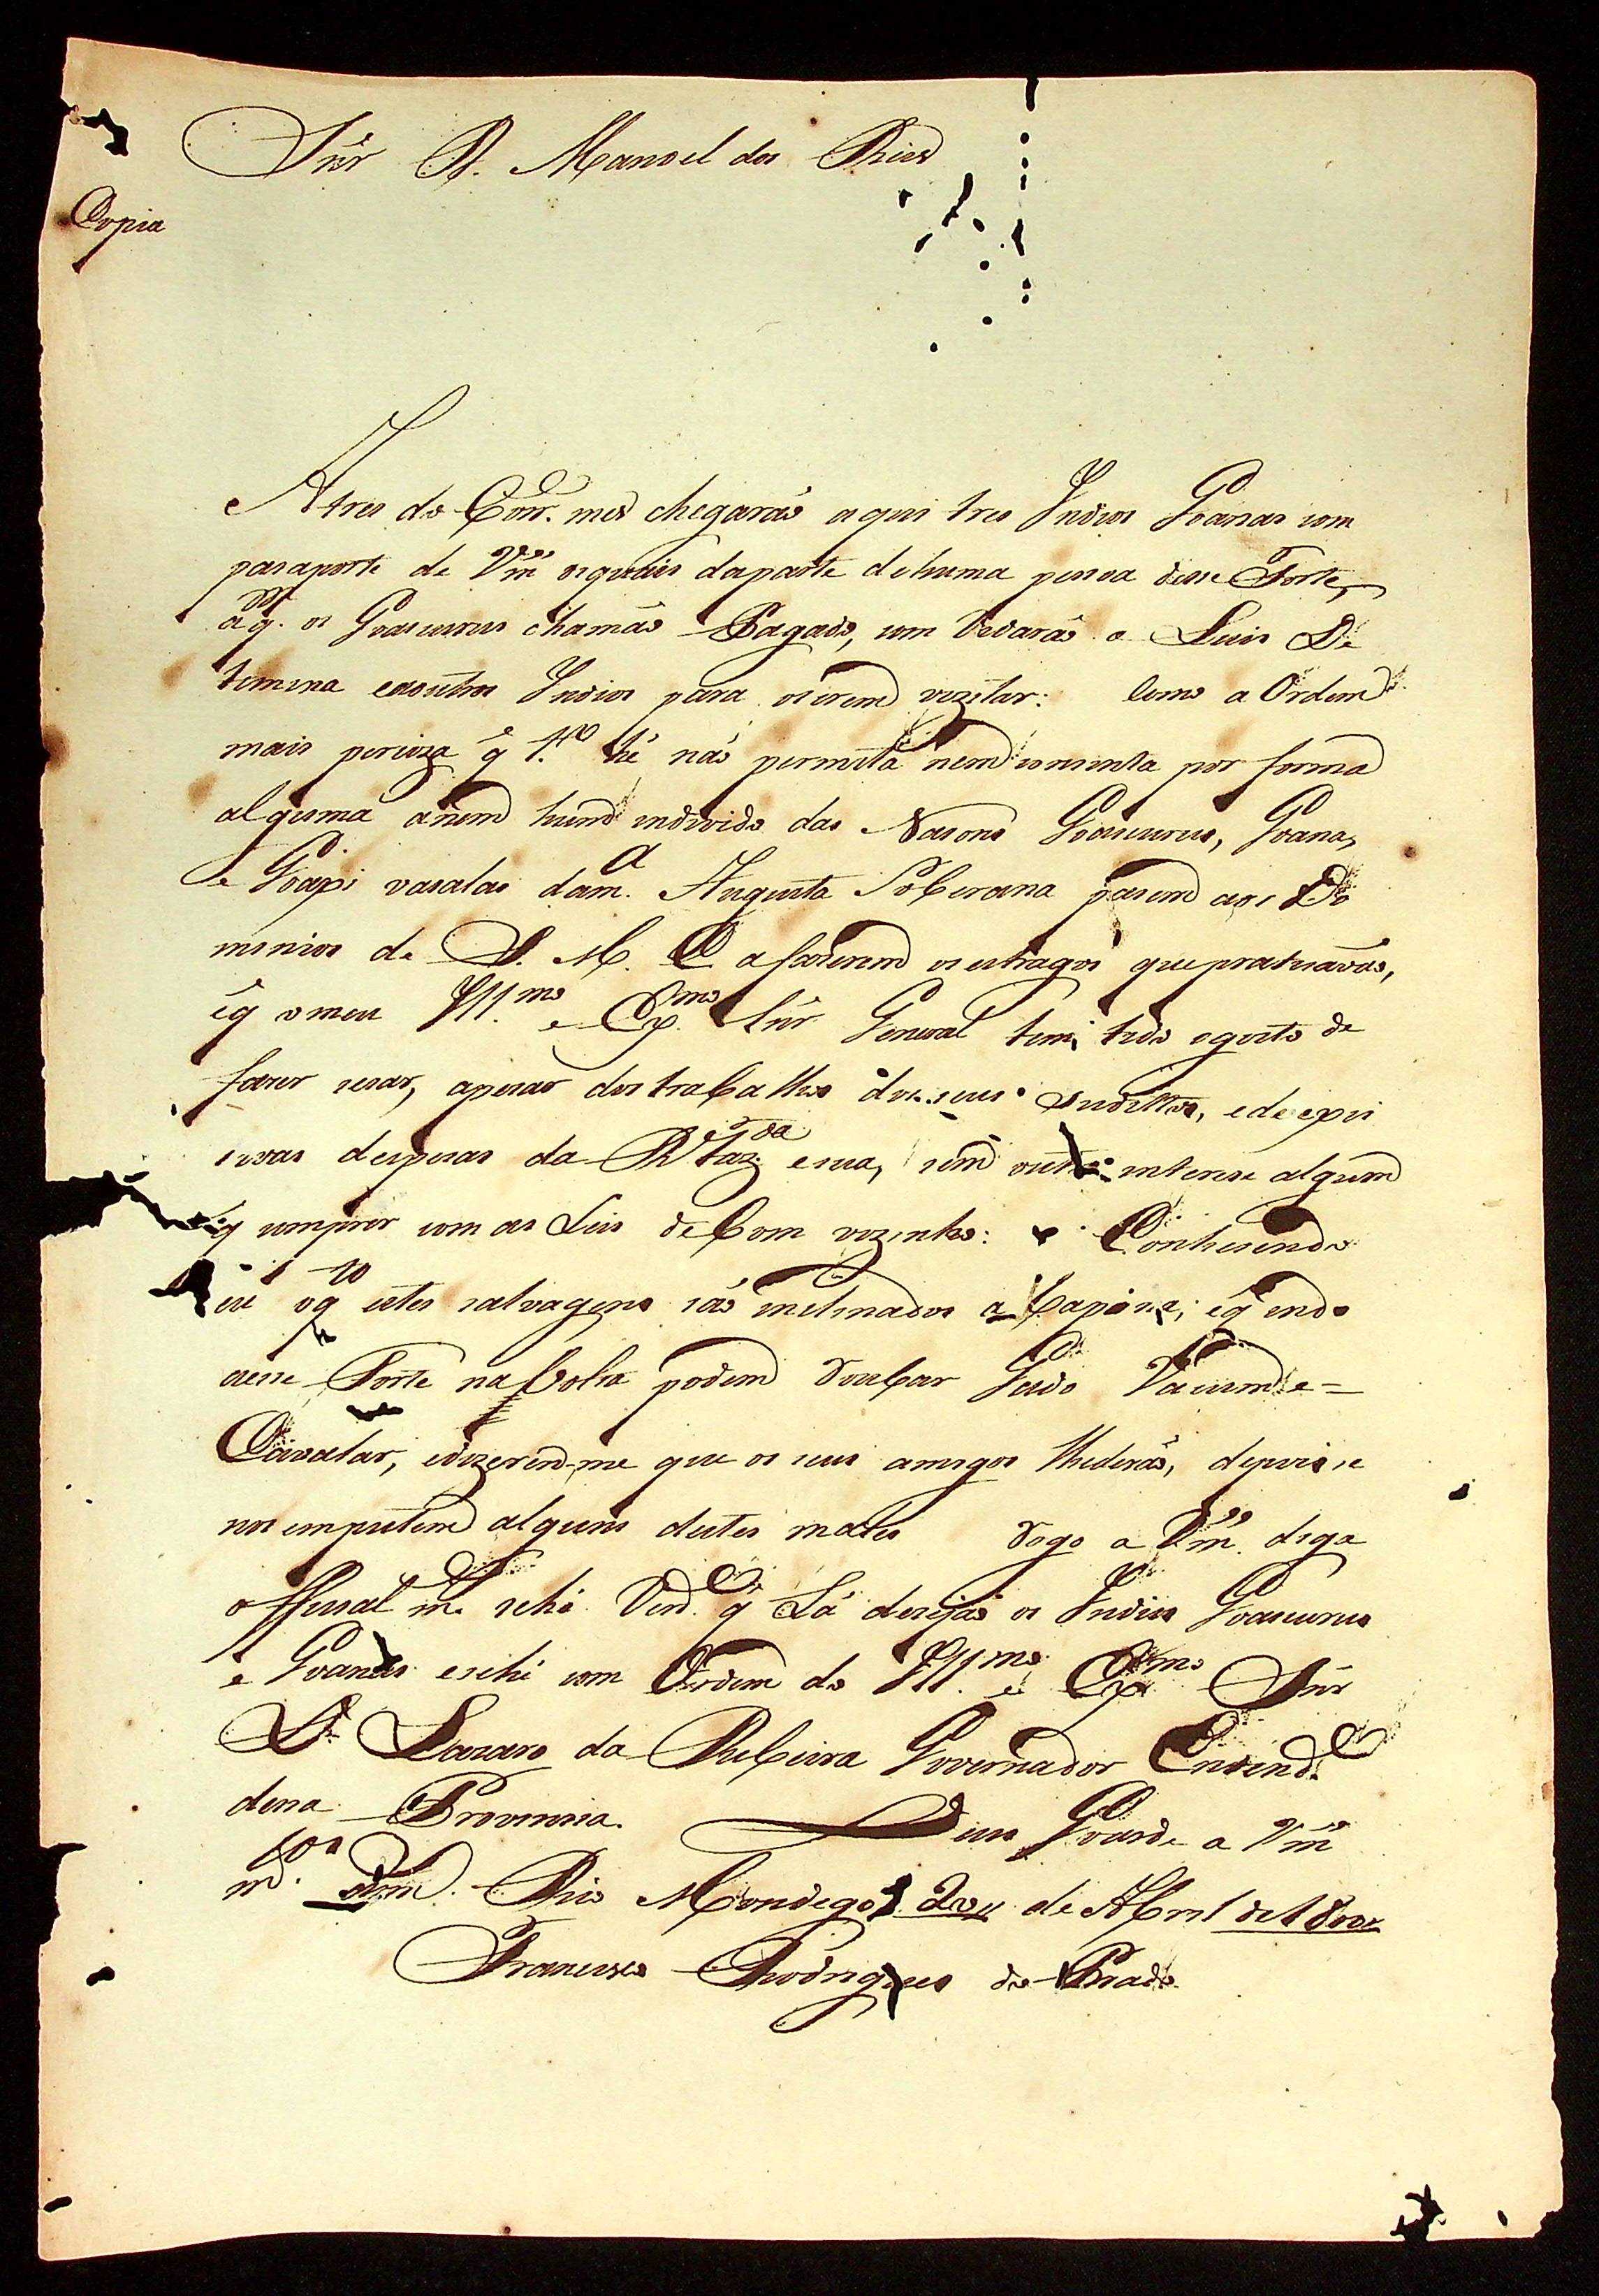 Snr D. Manoel dos Rios
Copia
A tres do Corr. mes chegaraõ aqui tres Indios Goanas com
pasaporte de Vm.ce os quais da parte de huma pessoa desse Forte,
a q. os Goaicurus chamaõ Pagado, com Vedaraõ a Luis De
temina e a outros Indios para os irem vezitar: Como a Ordem
mais preciza q t.o hé naõ permita nem consinta por forma
alguma a nem hum individo das Nasons Goaicurus, Goana,
e Goaxi vasalas da m.a Augusta Soberana pasem aos Do
minios de S. M. C a fazerem os estragos que praticavaõ,
e q o meu Ill.mo e Ex.mo Snr General tem tido o gosto de
fazer sesar, apesar dos trabalhos dos seus suditos, e de expi
sivas despesas da R. Faz.da e sua, sem outro interese algum
q cumprir com as Leis de bom vezinho: e Conhesendo
eu o q estes salvagens saõ inclinados a Rapina; e q indo
a esse Forte na Volta podem Roubar Gado Vacum e =
Cavalar, e dizerem-me que os seus amigos lhe deraõ, depois se
nos imputem alguns destes males Rogo a Vm.ce diga
o ffisial m.e se hé Verd.e q Lá desejaõ os Indios Goaicurus
e Goanas e se hé com Ordem do Ill.mo e Ex.mo Snr
D. Lazaro da Rebeira Governador Entend.e
desa Provinsia. Deus Goarde a Vm.ce
m.tos an.s Rio Mondego 20 de Abril de 1800
Francisco Rodrigues do Prado